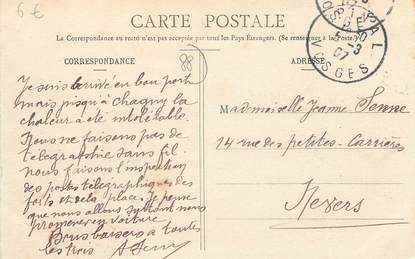 6 €
CARTE POSTALE
La Correspondance au recto n'est pas acceptée par tous les Pays Étrangers. (Se renseigner à la Poste.)
CORRESPONDANCE
ADRESSE
ÉPINAL
VOSGES
Je suis arrivé en bon port
mais jusqu'à Chagny la
chaleur a été intolérable.
Nous ne faisons pas de
télégraphie sans fil.
nous faisons l'inspection
des postes télégraphiques des
forts et de la place. Je pense
que nous allons surtout nous
promener en voiture
Bons baisers à toutes
les trois
Mademoiselle Jeanne Senne
14 rue des petites-Carrières
Nevers